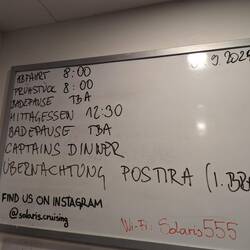 ABFAHRT 8:00
FRÜHSTÜCK 8:00
BADEPAUSE TBA
MITTAGESSEN 12:30
BADEPAUSE TBA
CAPTAINS DINNER
ÜBERNACHTUNG POSTIRA (1. BBA
FIND US ON INSTAGRAM
@solaris.cruising
Wi-Fi: Solaris555